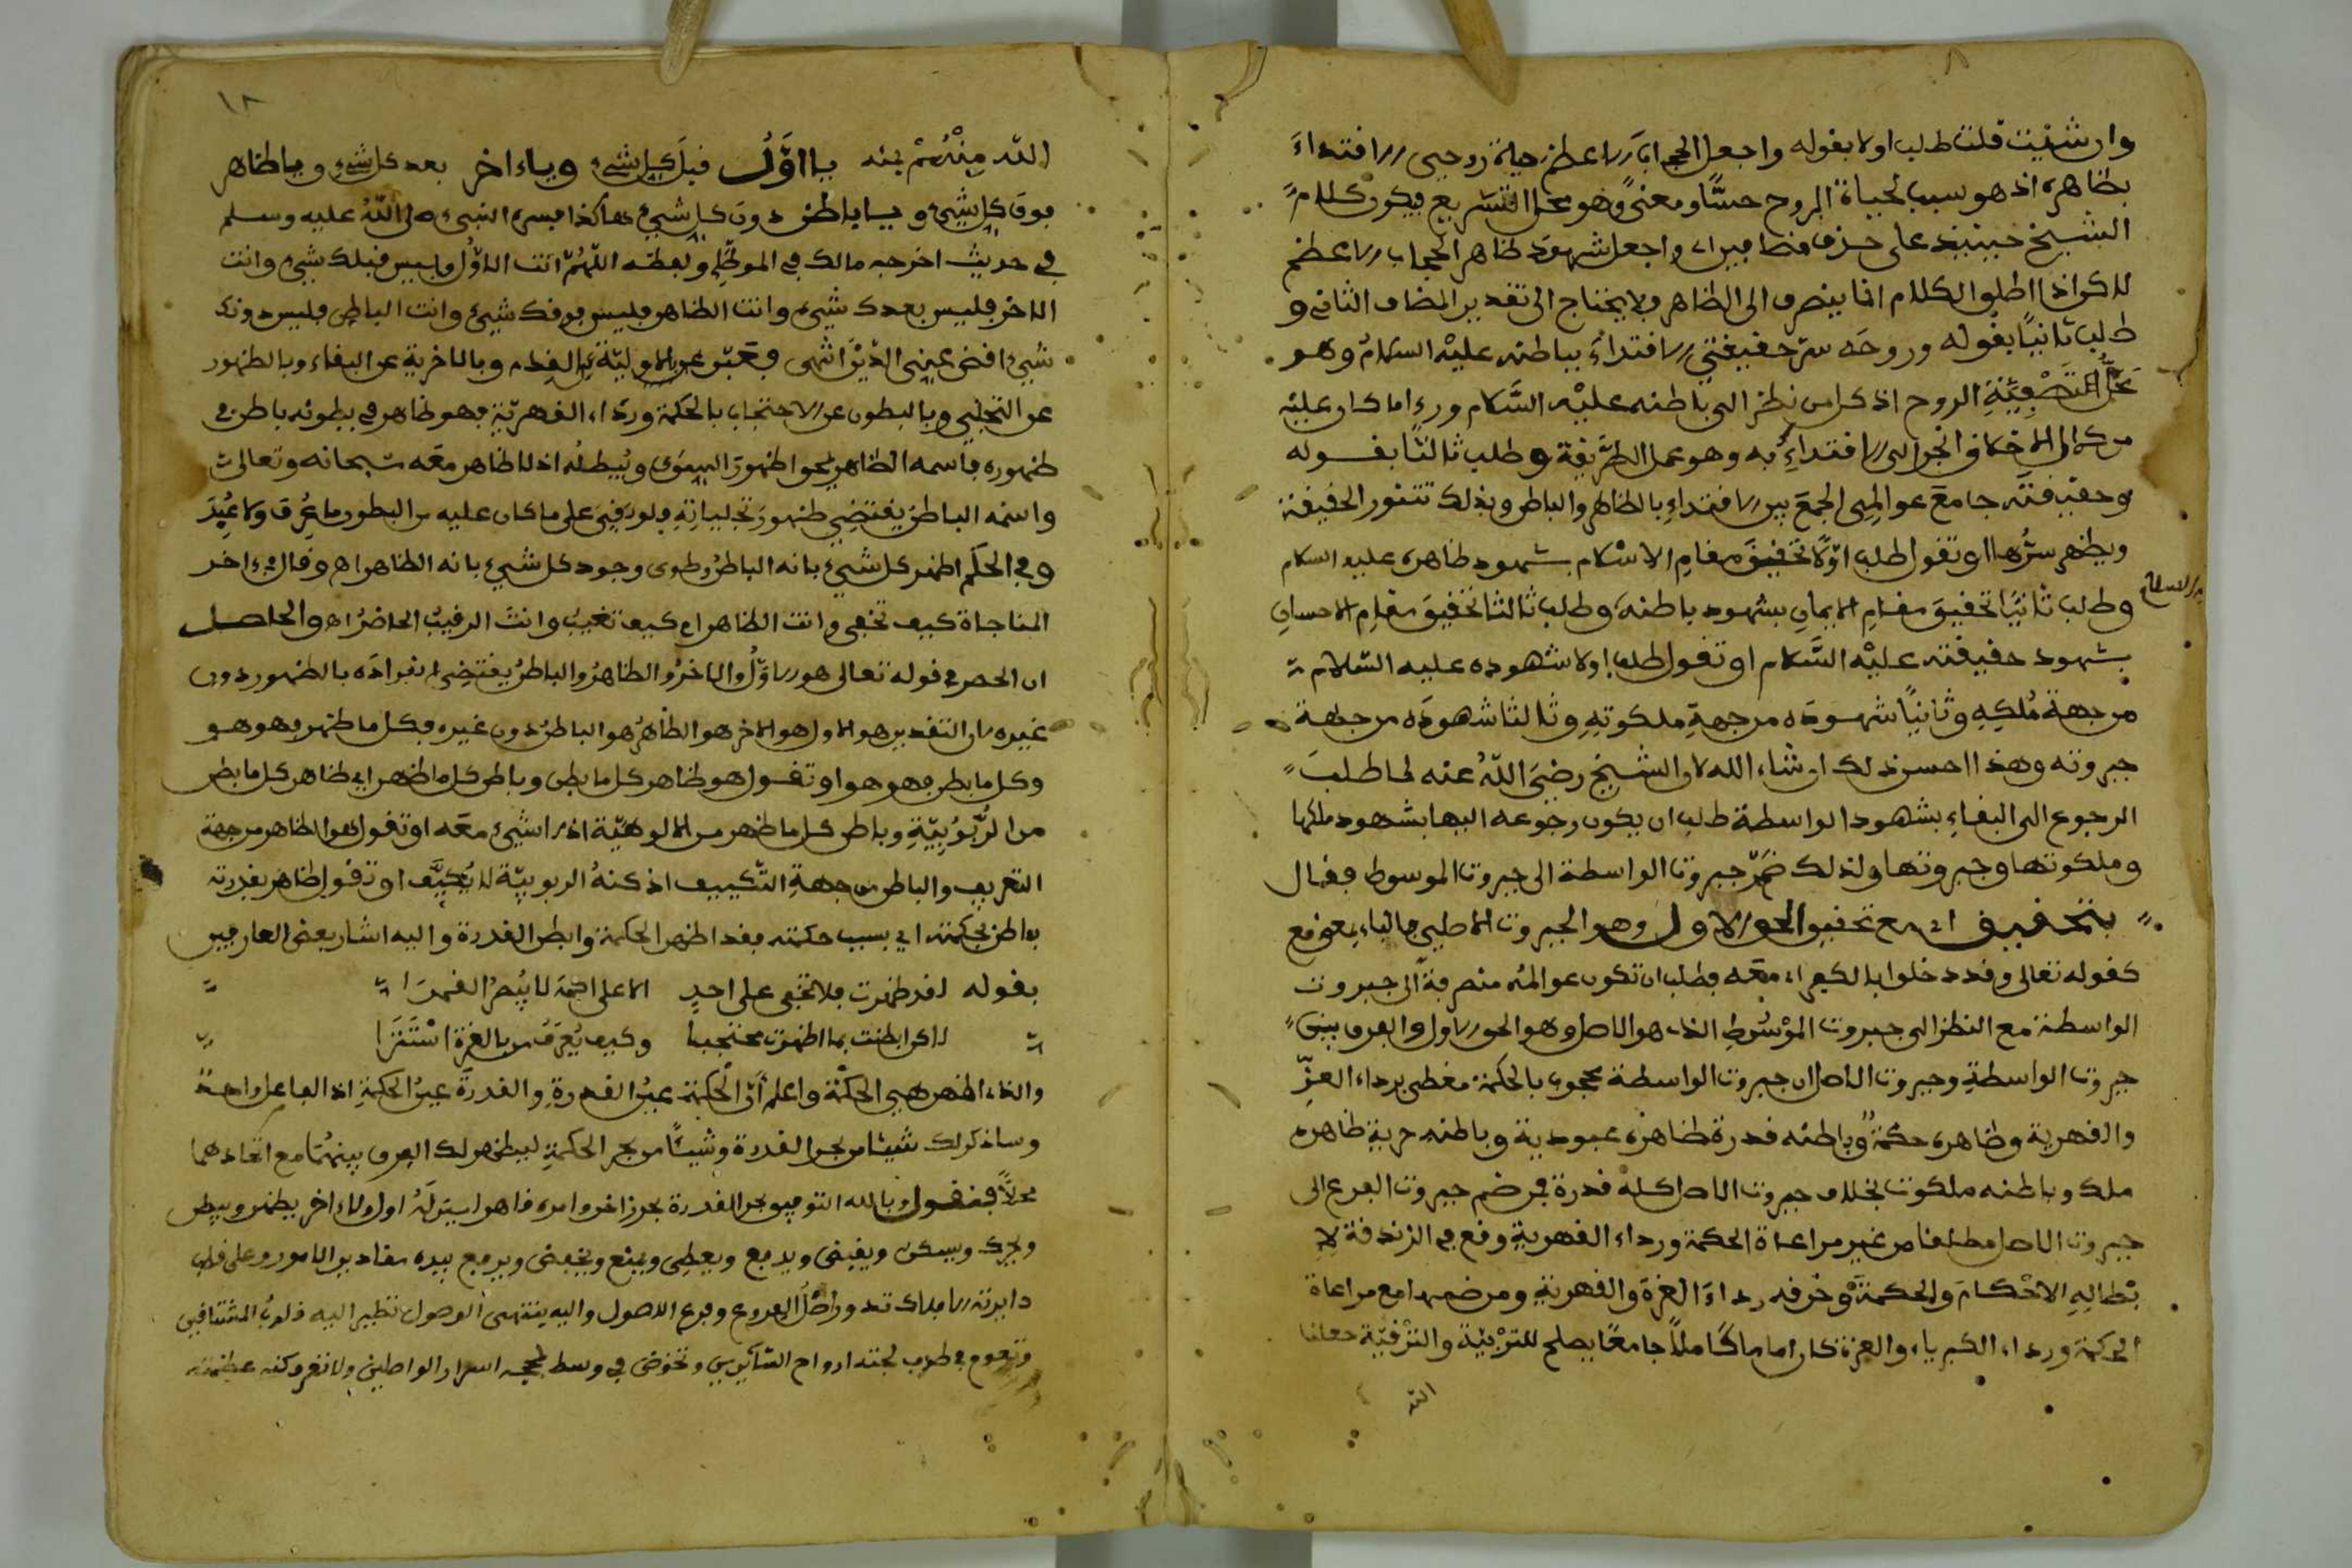 وان شئت قلت طلب اولا بقوله واجعل الحجاب الاعظم حياة روحي الاقتداءَ
بظاهره اذ هو سبب لحياة الروح حسًّا ومعنىً وهو محل التشريع فيكون كلام
الشيخ حينئذ على حذف مضافين اي واجعل شهود ظاهر الحجاب الاعظم
لاكن اذا اطلق الكلام انما ينصرف الى الظاهر ولا يحتاج الى تقدير المضاف الثاني و
طلب ثانيًا بقوله وروحَه سرّ حقيقتي الاقتداءَ بباطنه عليْه السلامُ وهو
محَلُّ التَّصْفِيَّةِ الروح اذ كل من نظر الى باطنه عليْه السَّلام وراى ما كان عليْه
من كمال الاخلاق انجر الى الاقتداءِ به وهو عمل الطَّريقة وطلب ثالثًا بقوله
وحقيقتَه جامعَ عوالمِي الجمعَ بين الاقتداءِ بالظاهر والباطن وبذلك تتنور الحقيقة
ويظهر سرُّها او تقول طلب اوّلا تحقيقَ مقامِ الاسْلام بشهود ظاهره عليه السلام
وطلب ثانيًا تحقيقَ مقامِ الايمانِ بشهود باطنه وطلب ثالثا تحقيقَ مقامِ الاحسانِ
بشهود حقيقته عليْه السَّلام او تقول طلب اولا شهوده عليه السّلام
من جهة مُلكِهِ وثانيًا شهودَه من جهةِ ملكوتِهِ وثالثا شهودَه من جهة
جبروته وهذا احسن ذلك ان شاء الله لان الشيخ رضيَ اللّهُ عنه لما طلبَ
الرجوع الى البقاءِ بشهود الواسطة طلب ان يكون رجوعه اليها بشهود ملكها
وملكوتها وجبروتها ولذلك ضَمّ جبروت الواسطة الى جبروت الموسوط فقال
بتحقيق اي مع تحقيق الحق الاول وهو الجبروت الاصلي فالباء بمعنى مع
كقوله تعالى وقد دخلوا بالكفر اي معَه فطلب ان تكون عوالمُه منصرفةً الى جبروت
الواسطة مع النظر الى جبروت المؤسُوط الذي هو الاصل وهو الحق الاول والفرق بين
جبروت الواسطةِ وجبروت الاصل ان جبروت الواسطة محجوب بالحكمة مغطى برداء العزِّ
والقهرية وظاهره حكمةٌ وباطنه قدرة ظاهره عبودية وباطنه حرية ظاهره
ملك وباطنه ملكوت بخلاف جبروت الاصل كله قدرة فمن ضم جبروت الفرع الى
جبروت الاصل مطلقا من غير مراعاة الحكمة ورداء القهرية وقع في الزندقة لاِ
بْطالِهِ الاحْكامَ والحكمةَ وخرقه رداءَ العزة والقهرية ومن ضمها مع مراعاة
الحكمة ورداء الكبرياء والعزة كان اماما كاملاً جامعًا يصلح للتربْيَة والتّرْقيَة جعلنا
الله
١٨
اللّه مِنْهُمْ بمنه يا اوَّلُ قبلَ كل شيء ويا ءاخر بعد كل شيء ويا ظاهر
فوق كل شيء ويا باطن دون كل شيء هاكذا فسره النبيء صلى اللّهُ عليه وسلم
في حديث اخرجه مالك في الموطَّإِ ولفظه اللّهُمّ انت الاوّلُ وليس قبلك شيء وانت
الاخر فليس بعدك شيء وانت الظاهر فليس فوقك شيء وانت الباطن فليس دونك
شيء اقض عني الدّيْن انتهى فعَبّر عن الاوليّة بالقدم وبالاخرية عن البقاء وبالظهور
عن التجلي وبالبطون عن الاحتجاب بالحكمة ورداء القهريّة فهو ظاهر في بطونه باطن في
ظهوره فاسمه الظاهر يمحوا ظهورَ السِوَى ويُبطله اذ لا ظاهر معَه سبحانه وتعالى
واسمه الباطن يقتضِي ظهورَ تجلياتِهِ ولو بقيَ على ما كان عليه من البطون ما عُرِف ولا عُبِدَ
وفي الحِكَم اظهر كل شيء بانه الباطنُ وطوى وجود كل شيء بانه الظاهر اهـ وقال في ءاخر
المناجاة كيف تخفى وانت الظاهر ام كيف تغيبُ وانتَ الرقيبُ الحاضرُ اهـ والحاصل
ان الحصر في قوله تعالى هو الاوّلُ والاخرُ والظاهرُ والباطنُ يقتضِي انفرادَه بالظهور دون
غيره لان التقدير هو الاول هو الاخر هو الظاهرُ هو الباطنُ دون غيره فكل ما ظهر فهو هو
وكل ما بطن فهو هو او تقول هو ظاهر كل ما بطن وباطن كل ما ظهر اي ظاهر كل ما بطن
من الرُّبُوبِيّةِ وباطن كل ما ظهر من الالوهيّة اذ لا شيء معَه او تقول هو الظاهر من جهة
التعريف والباطن من جهةِ التّكييف اذ كنهُ الربوبيّة لا يُكيَّف او تقول ظاهر بقدرته
باطن بحكمته اي بسبب حكمته فقد اظهر الحكمة وابطن القدرة واليه اشار بعض العارفين
بقوله لقد ظهرت فلا تخفى على احدٍ الا على اكمهَ لا يُبصِرُ القمرَا
لاكن ابطنت بما اظهرت محتجبا وكيف يُعرَفُ من بالعزة اسْتَتَرَا
والذي اظهر هي الحكْمَة واعلم أنّ الْحكمة عينُ القدرةِ والقدرةَ عينُ الحكمةِ اذ الفاعل واحد
وساذكر لك شيئا من بحر القدرة وشيئًا من بحر الحكمةِ ليظهر لك الفرق بينهُمَا مع اتحادهما
محلاًّ فنقول وبالله التوفيق بحر القدرة بحر زاخر وامره قاهر ليس لَهُ اول ولا ءاخر يظهر ويبطن
ويحرك ويسكن ويقبض ويدفع ويعطِي ويمنع ويخفض ويرفع بيده مقادير الامور وعلى قطب
دايرته الافلاك تدور اصْلُ الفروع وفرع الاصول واليه ينتهي الوصول تطير اليه قلوبُ المشتاقين
وتعوم في طرف لجته ارواح السّائرين وتخوض في وسط لججه اسرار الواصلين ولا تعرف كنه عظمته